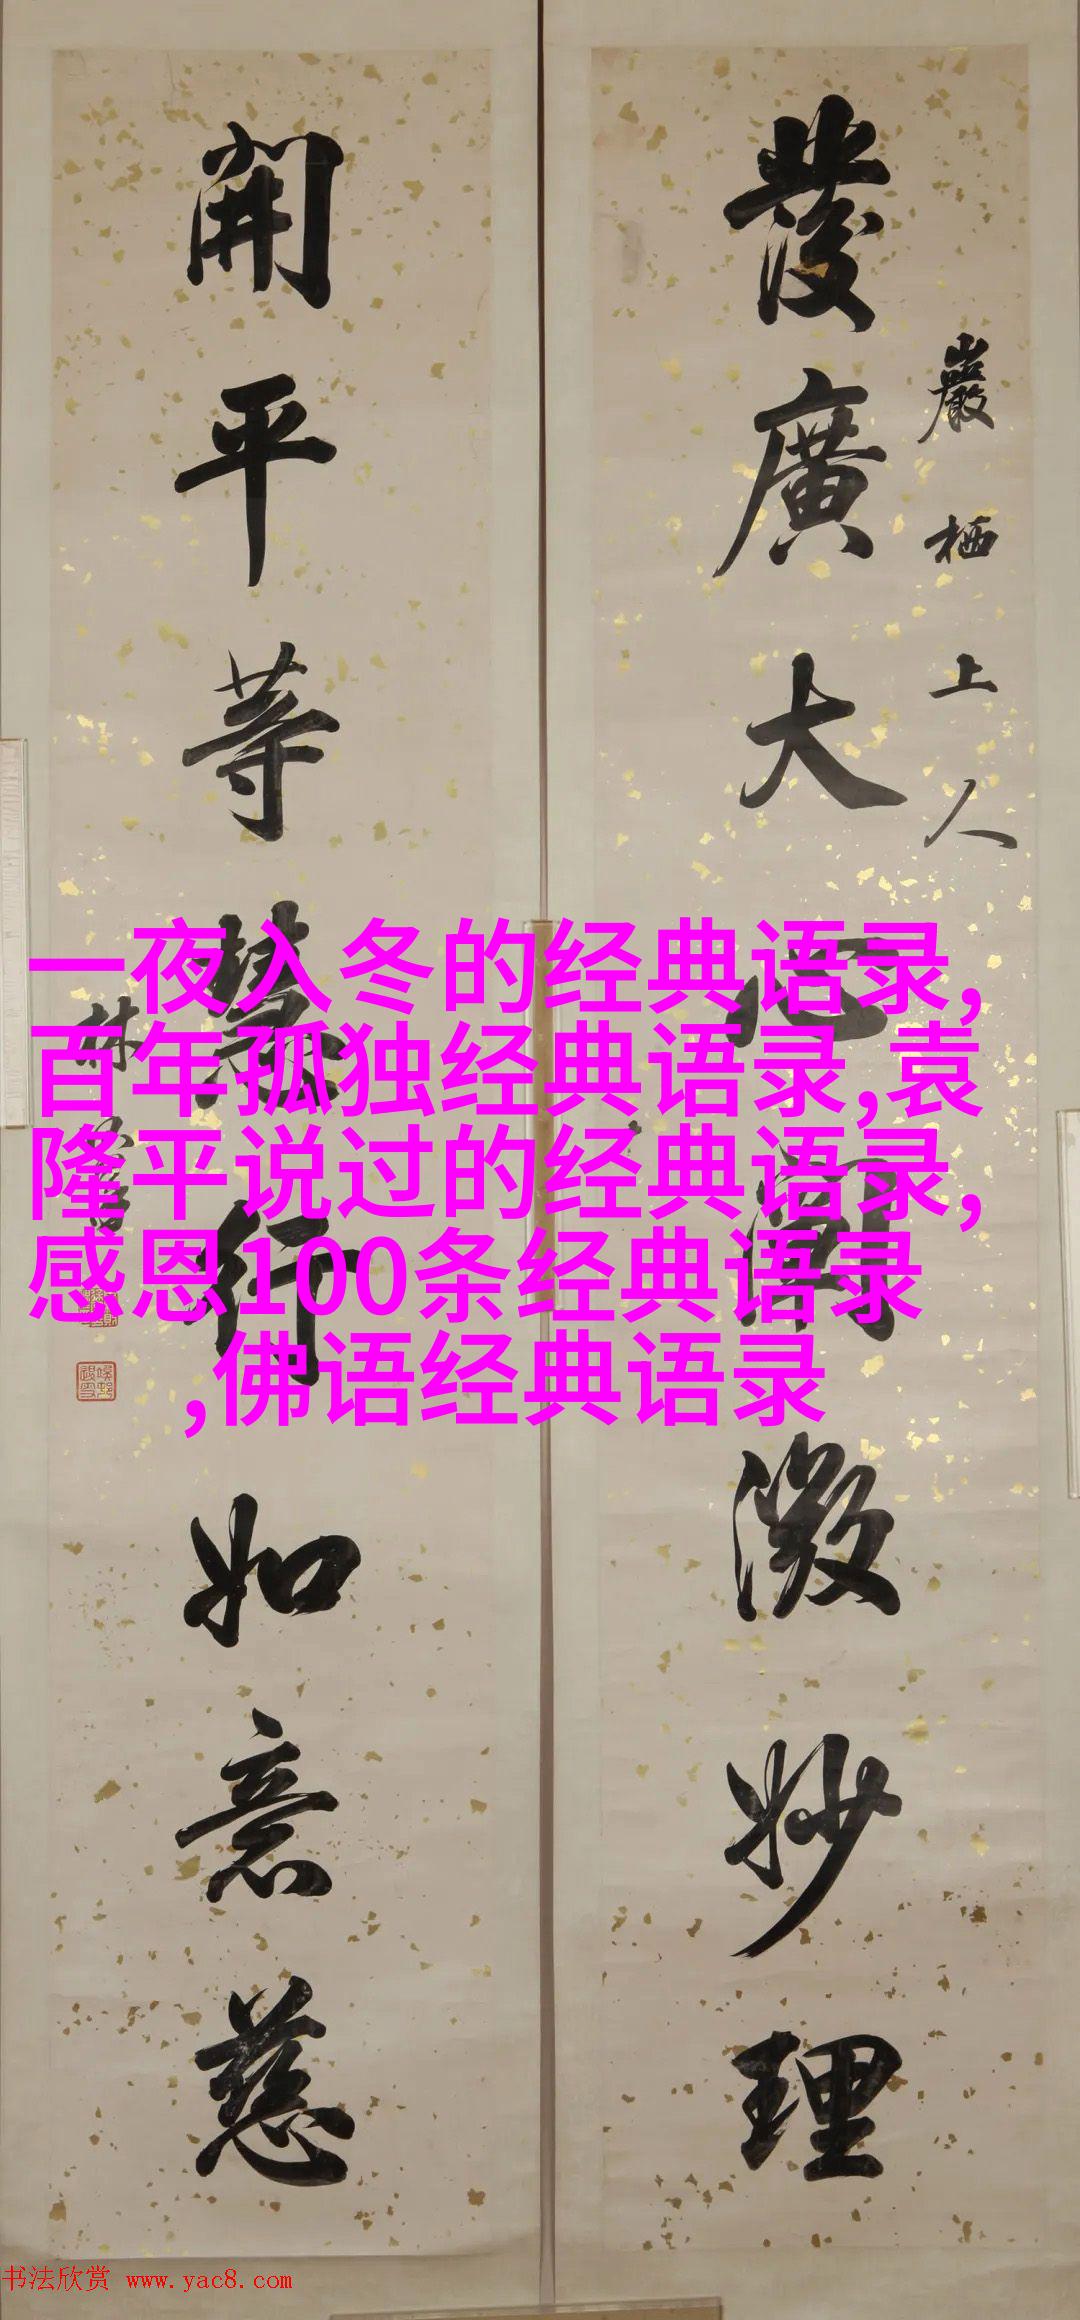 發廣大心闡微妙理
巖栖上人
開平等慧行如意慈
林
一夜入冬的经典语录,
百年孤独经典语录,袁
隆平说过的经典语录,
感恩100条经典语录
,佛语经典语录
书法欣赏 www.yac8.com